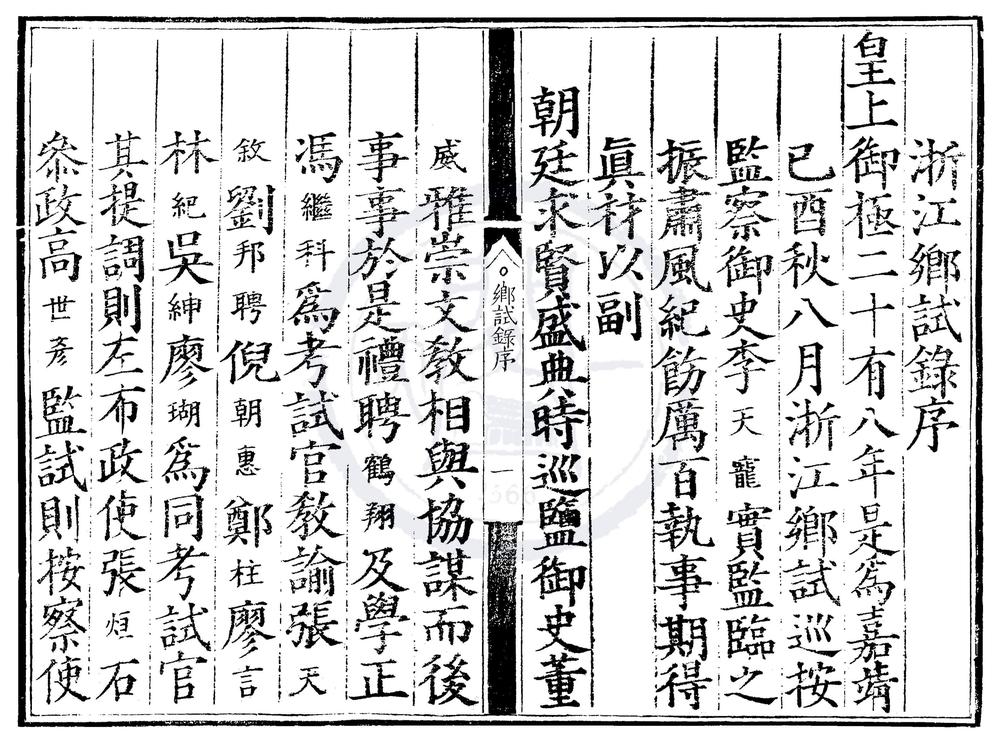 浙江鄉試錄序
皇上御極二十有八年是爲嘉靖
已酉秋八月浙江鄉試巡按
監察御史李天寵實監臨之
振肅風紀飭厲百執事期得
眞材以副
朝廷求賢盛典時巡鹽御史董
鄉試錄序
一
威雅崇文教相與協謀而後
事事於是禮聘鶴翔及學正
馮繼科爲考試官教諭張天
敘劉邦聘倪朝惠鄭柱廖言
林紀吳紳廖瑚爲同考試官
其提調則左布政使張烜石
叅政高世彥監試則按察使